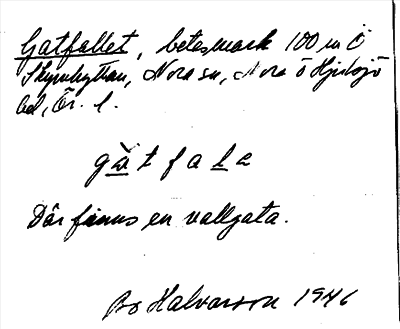 Gatfallet, betesmark 100 m Ö
Skymhyttan, Nora sn, Nora o Hjulsjö
bd, Ör. l.
gàt fale
Där finns en vallgata.
Bo Halvarson 1946